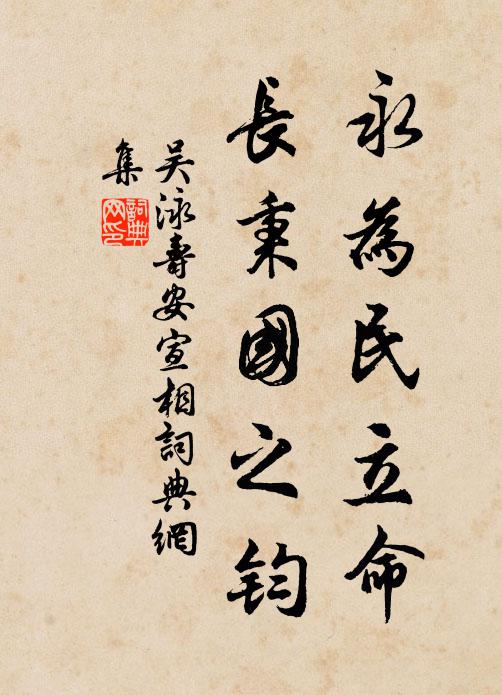 永為民立命
長秉國之鈞
吴泳壽安宣相詞典網
集
詞典
网印